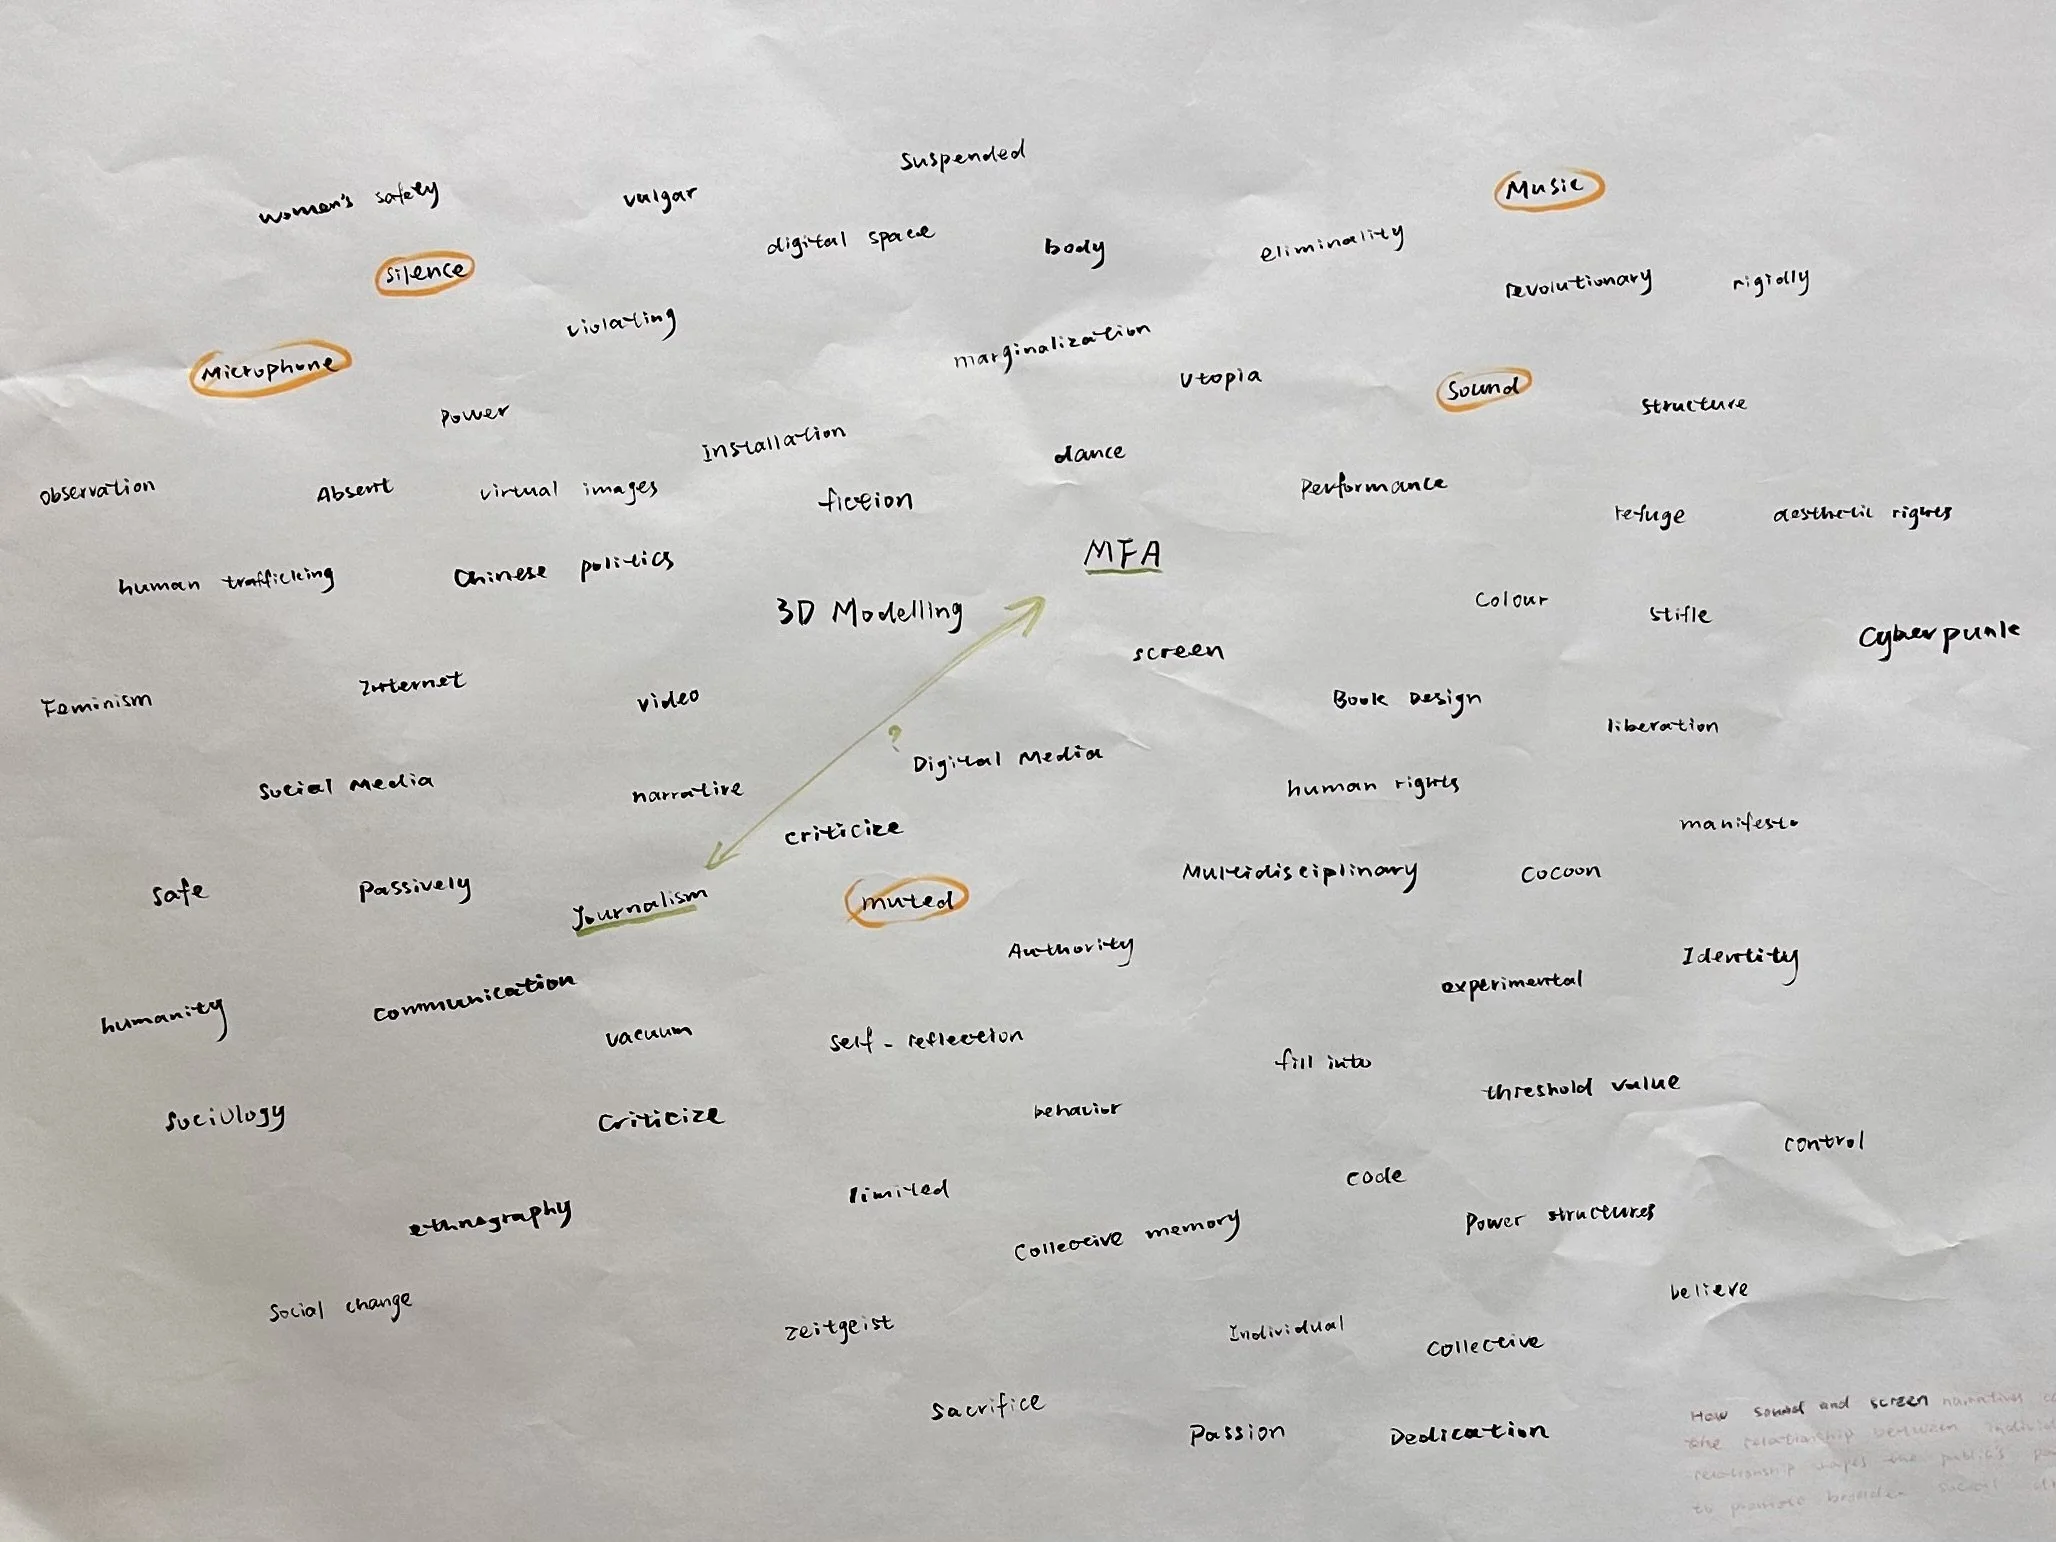 Suspended
women's safety
vulgar
Music
digital space
body
eliminality
silence
revolutionary
rigidly
violating
marginalization
Microphone
Utopia
Sound
structure
Power
Installation
dance
observation
Absent
virtual images
fiction
Performance
refuge
aesthetic rights
human trafficking
Chinese politics
MFA
3D Modelling
Colour
stifle
Cyberpunk
screen
Feminism
Internet
video
Book Design
liberation
?
Digital Media
Social Media
narrative
human rights
criticize
manifesto
safe
Passively
Journalism
muted
Multidisciplinary
Cocoon
Authority
Identity
experimental
humanity
communication
vacuum
self-reflection
fill into
threshold value
sociology
Criticize
behavior
control
limited
code
ethnography
Collective memory
Power structures
Social change
zeitgeist
Individual
Collective
believe
Sacrifice
Passion
Dedication
How sound and screen narratives
the relationship between
relationship shapes the public's
to promote broader